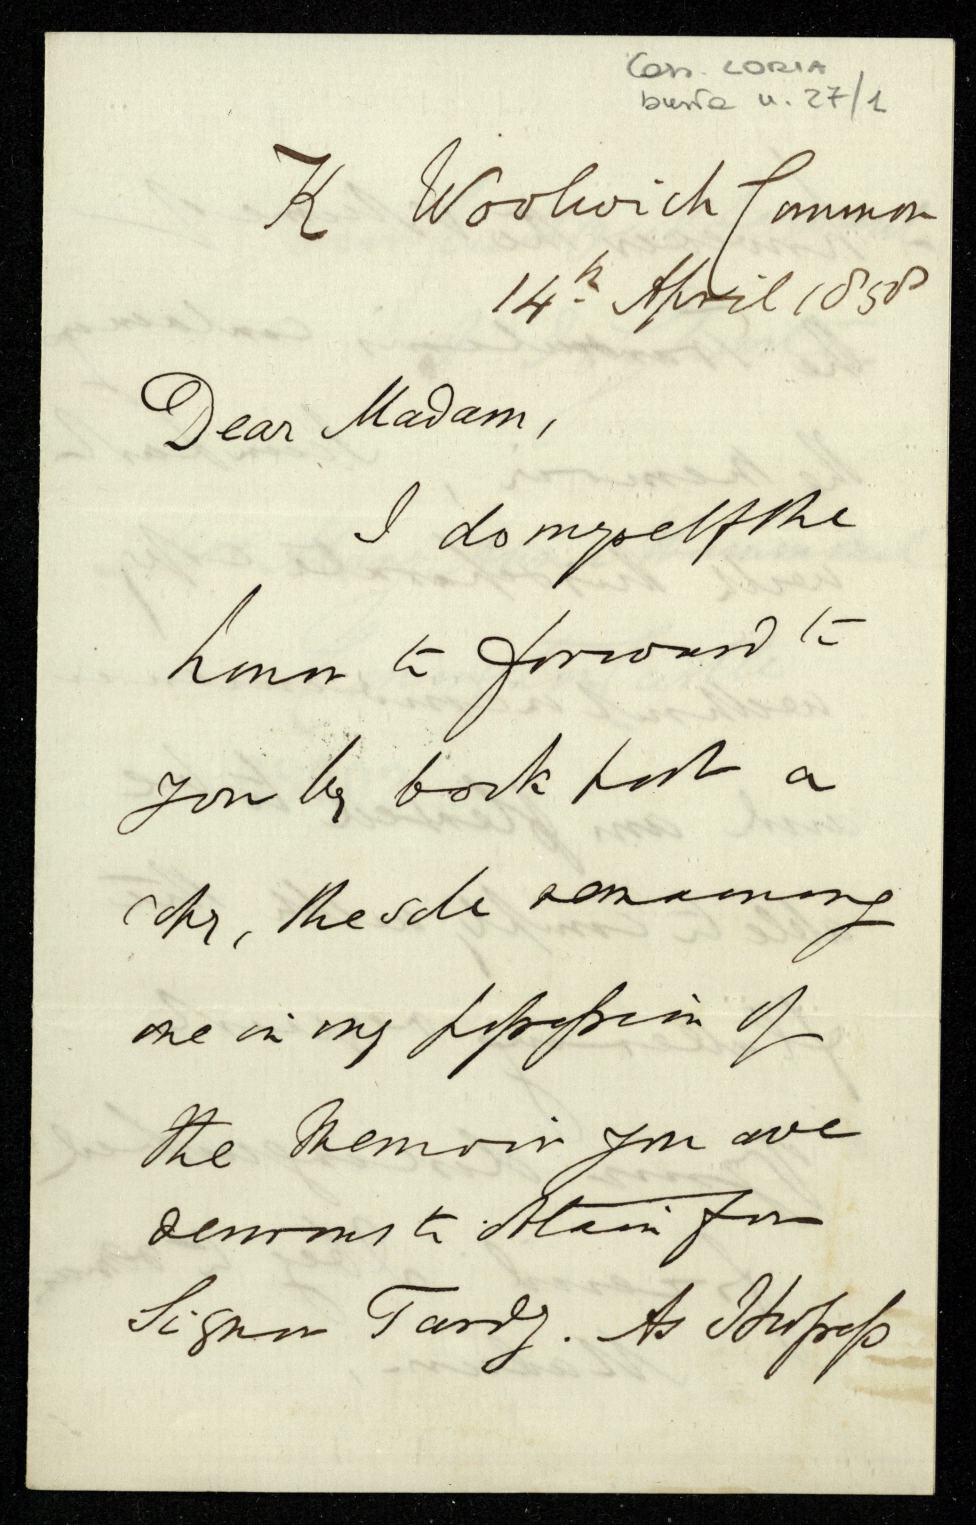 Cass. LORIA
busta n. 27/1
K Woolwich Common
14th April 1858
Dear Madam,
I do myself the
honor to forward to
you by book post a
copy, the sole remaining
one in my possession of
the Memoir you are
desirous to obtain for
Signor Tardy. As I possess